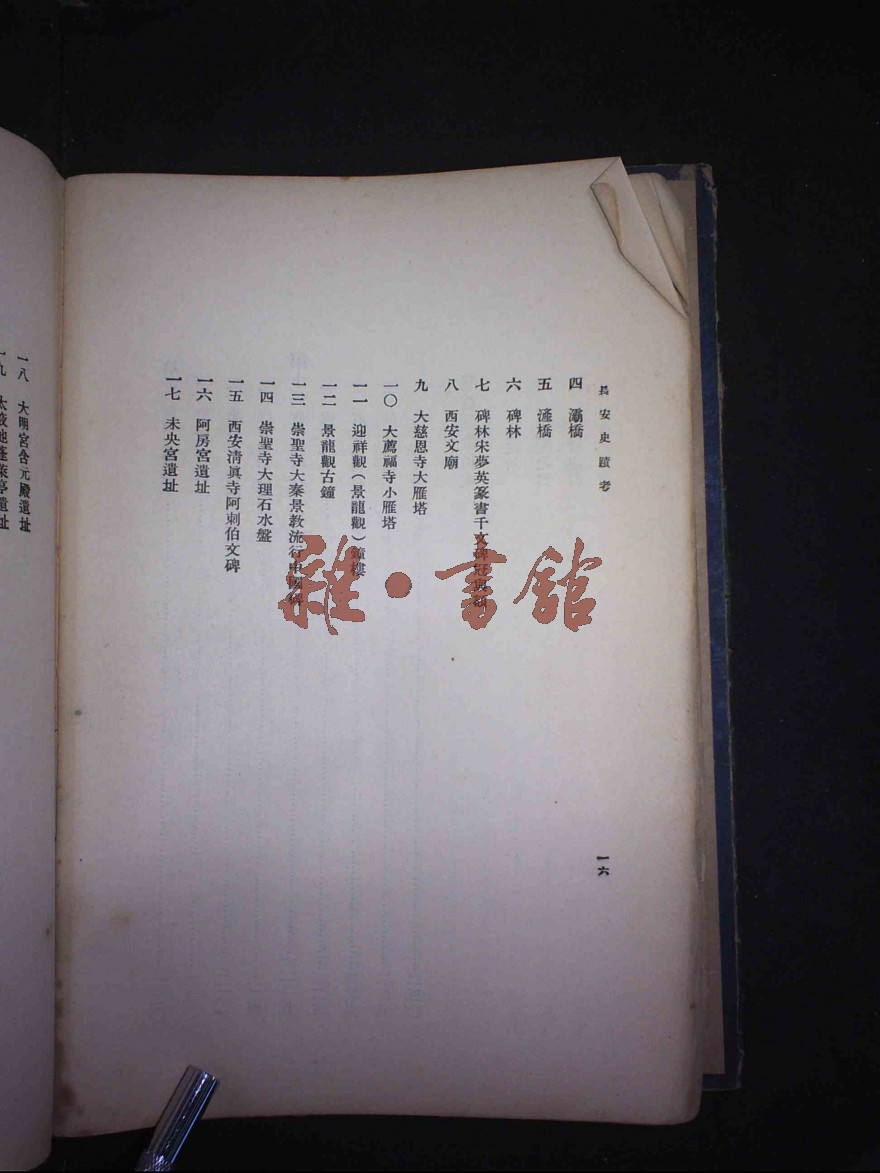 長安史蹟考
四 灞橋
五 滻橋
六 碑林
七 碑林宋夢英篆書千文碑
八 西安文廟
九 大慈恩寺大雁塔
一〇 大薦福寺小雁塔
一一 迎祥觀(景龍觀)鐘樓
一二 景龍觀古鐘
一三 崇聖寺大秦景教流行中國碑
一四 崇聖寺大理石水盤
一五 西安清眞寺阿刺伯文碑
一六 阿房宮遺址
一七 未央宮遺址
一六
一八 大明宮含元殿遺址
一九 太液池蓬萊亭遺址
雜·書館